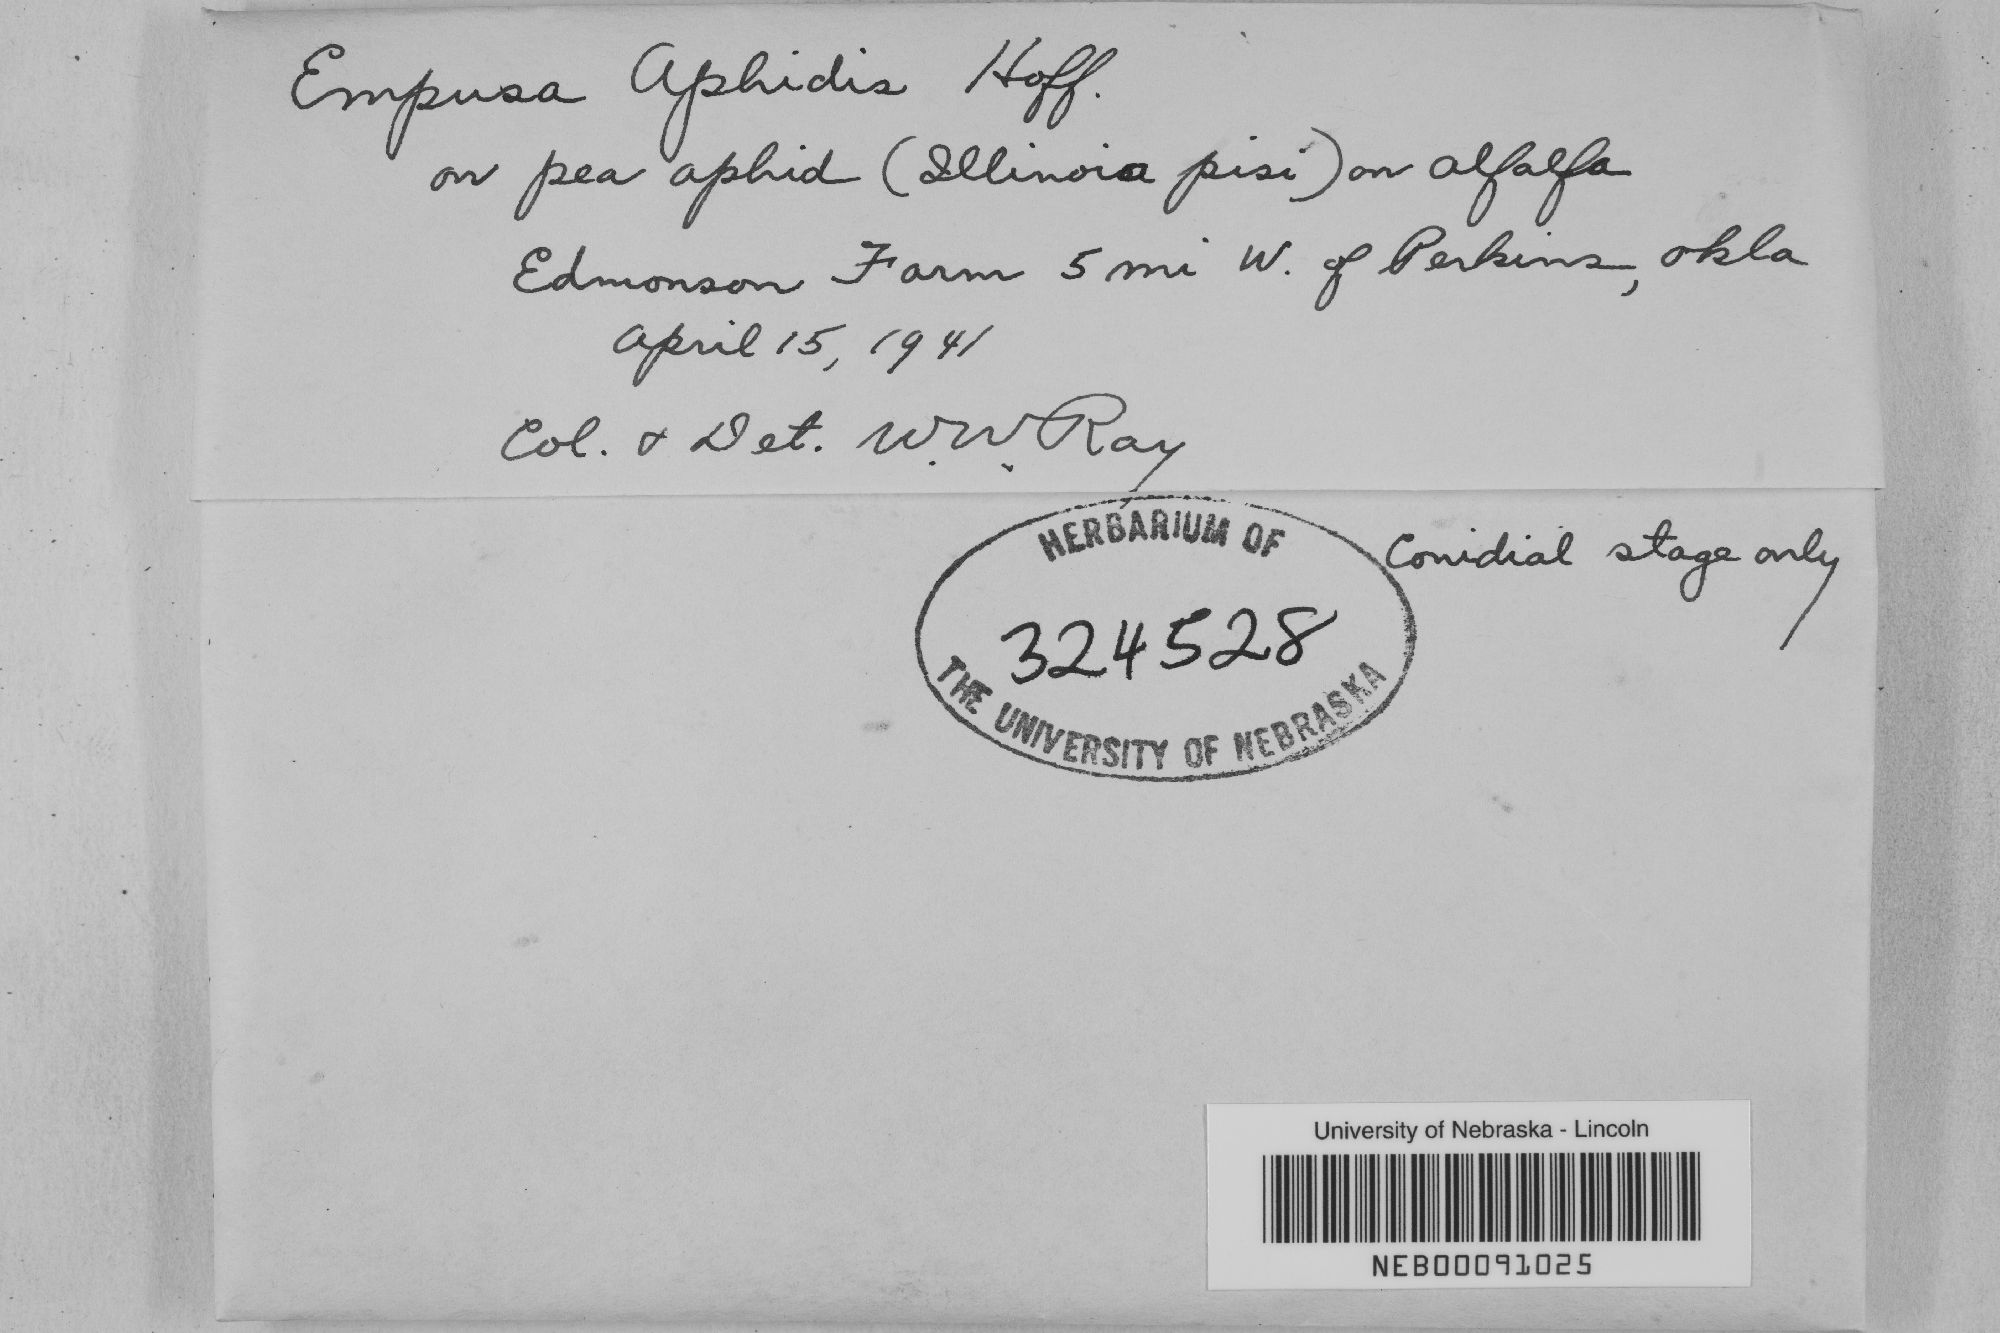 Empusa Aphidis Hoff.
on pea aphid (Illinoia pisi) on alfalfa
Edmonson Farm 5 mi W. of Perkins, Okla
April 15, 1941
Col. & Det. W.W. Ray
Conidial stage only
HERBARIUM OF
324528
THE UNIVERSITY OF NEBRASKA
University of Nebraska - Lincoln
NEB00091025